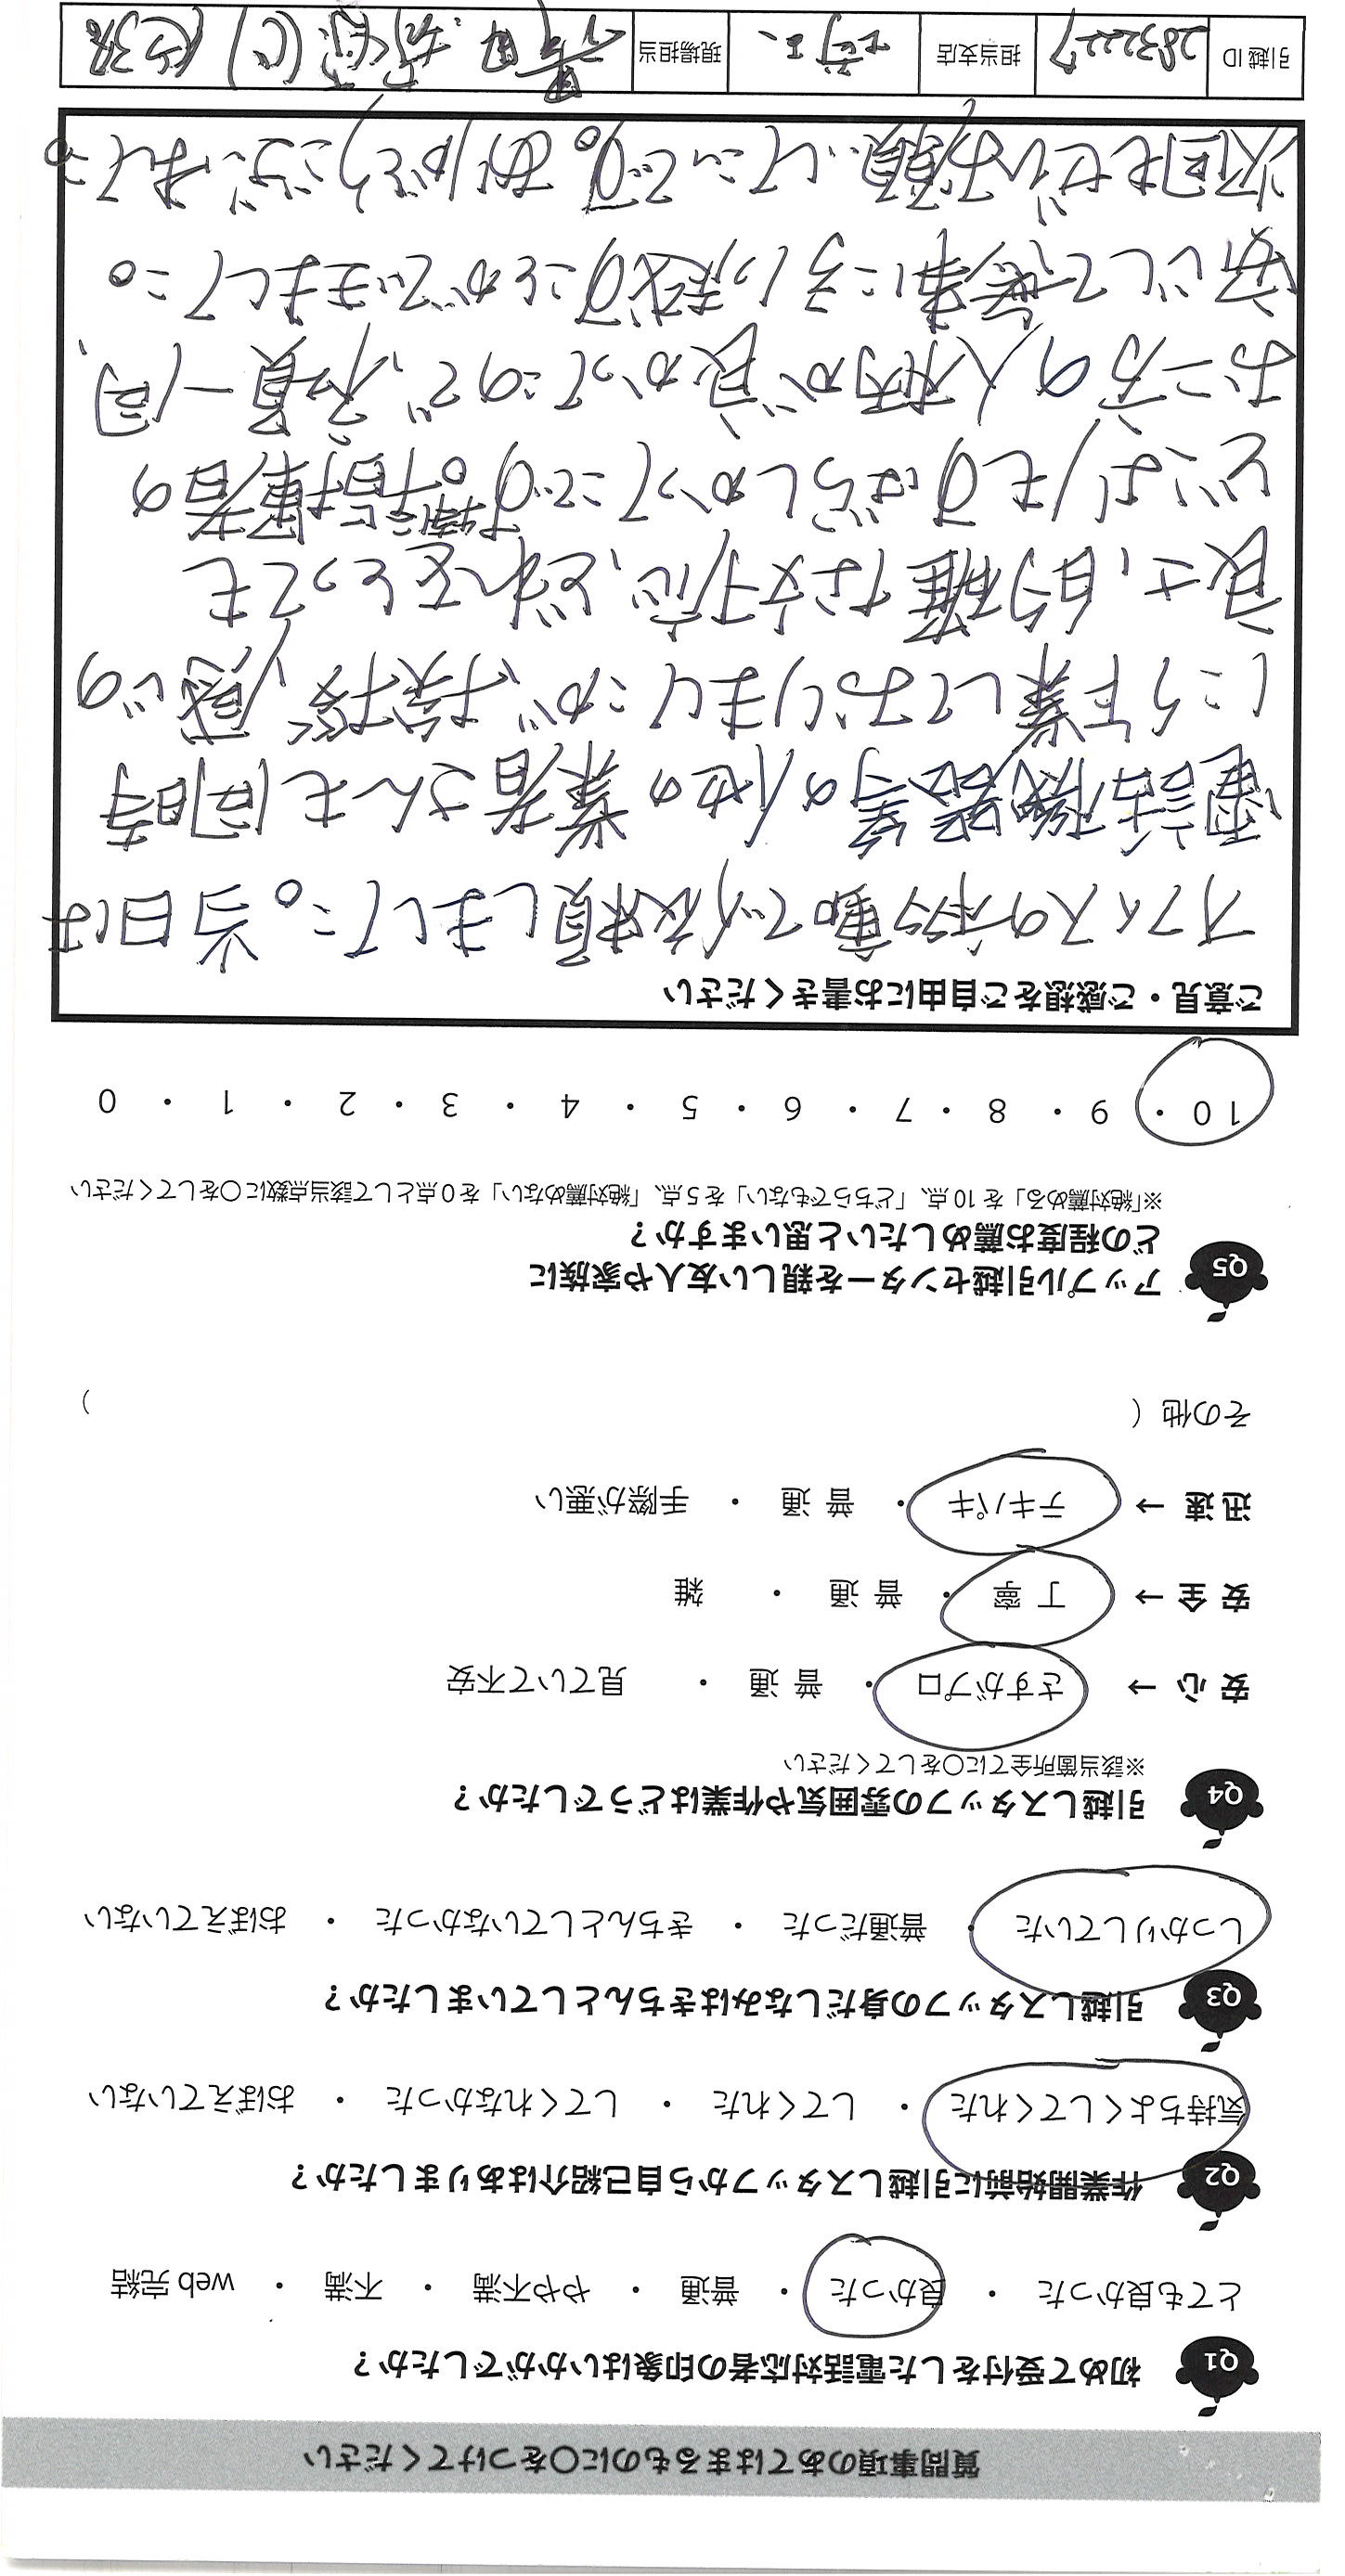 質問事項のあてはまるものに○をつけてください
Q1 初めて受付をした電話対応者の印象はいかがでしたか？
とても良かった ・ 良かった ・ 普通 ・ やや不満 ・ 不満 ・ web 完結
Q2 作業開始前に引越しスタッフから自己紹介はありましたか？
気持ちよくしてくれた ・ してくれた ・ してくれなかった ・ おぼえていない
Q3 引越しスタッフの身だしなみはきちんとしていましたか？
しっかりしていた ・ 普通だった ・ きちんとしていなかった ・ おぼえていない
Q4 引越しスタッフの雰囲気や作業はどうでしたか？
※該当箇所全てに○をしてください
安 心 → さすがプロ ・ 普 通 ・ 見ていて不安
安 全 → 丁 寧 ・ 普 通 ・ 雑
迅 速 → テキパキ ・ 普 通 ・ 手際が悪い
その他（ ）
Q5 アップル引越センターを親しい友人や家族に
どの程度お薦めしたいと思いますか？
※「絶対薦める」を 10 点、「どちらでもない」を 5 点、「絶対薦めない」を 0 点として該当点数に○をしてください
10 ・ 9 ・ 8 ・ 7 ・ 6 ・ 5 ・ 4 ・ 3 ・ 2 ・ 1 ・ 0
ご意見・ご感想をご自由にお書きください
オフィスの移動で依頼しました。当日は
電話機器等の他の業者さんも同時
にう作業しておりましたが、挨拶、感じの
良さ、的確な対応、どれをとっても
どこよりもすばらしかったです。特に搭乗者の
お二方の人柄が良かったので、社員一同、
安心して無事に引っ越すことができました。
次回もぜひお願いしたいです。ありがとうございました。
引越 ID 2832227 担当支店 現場担当